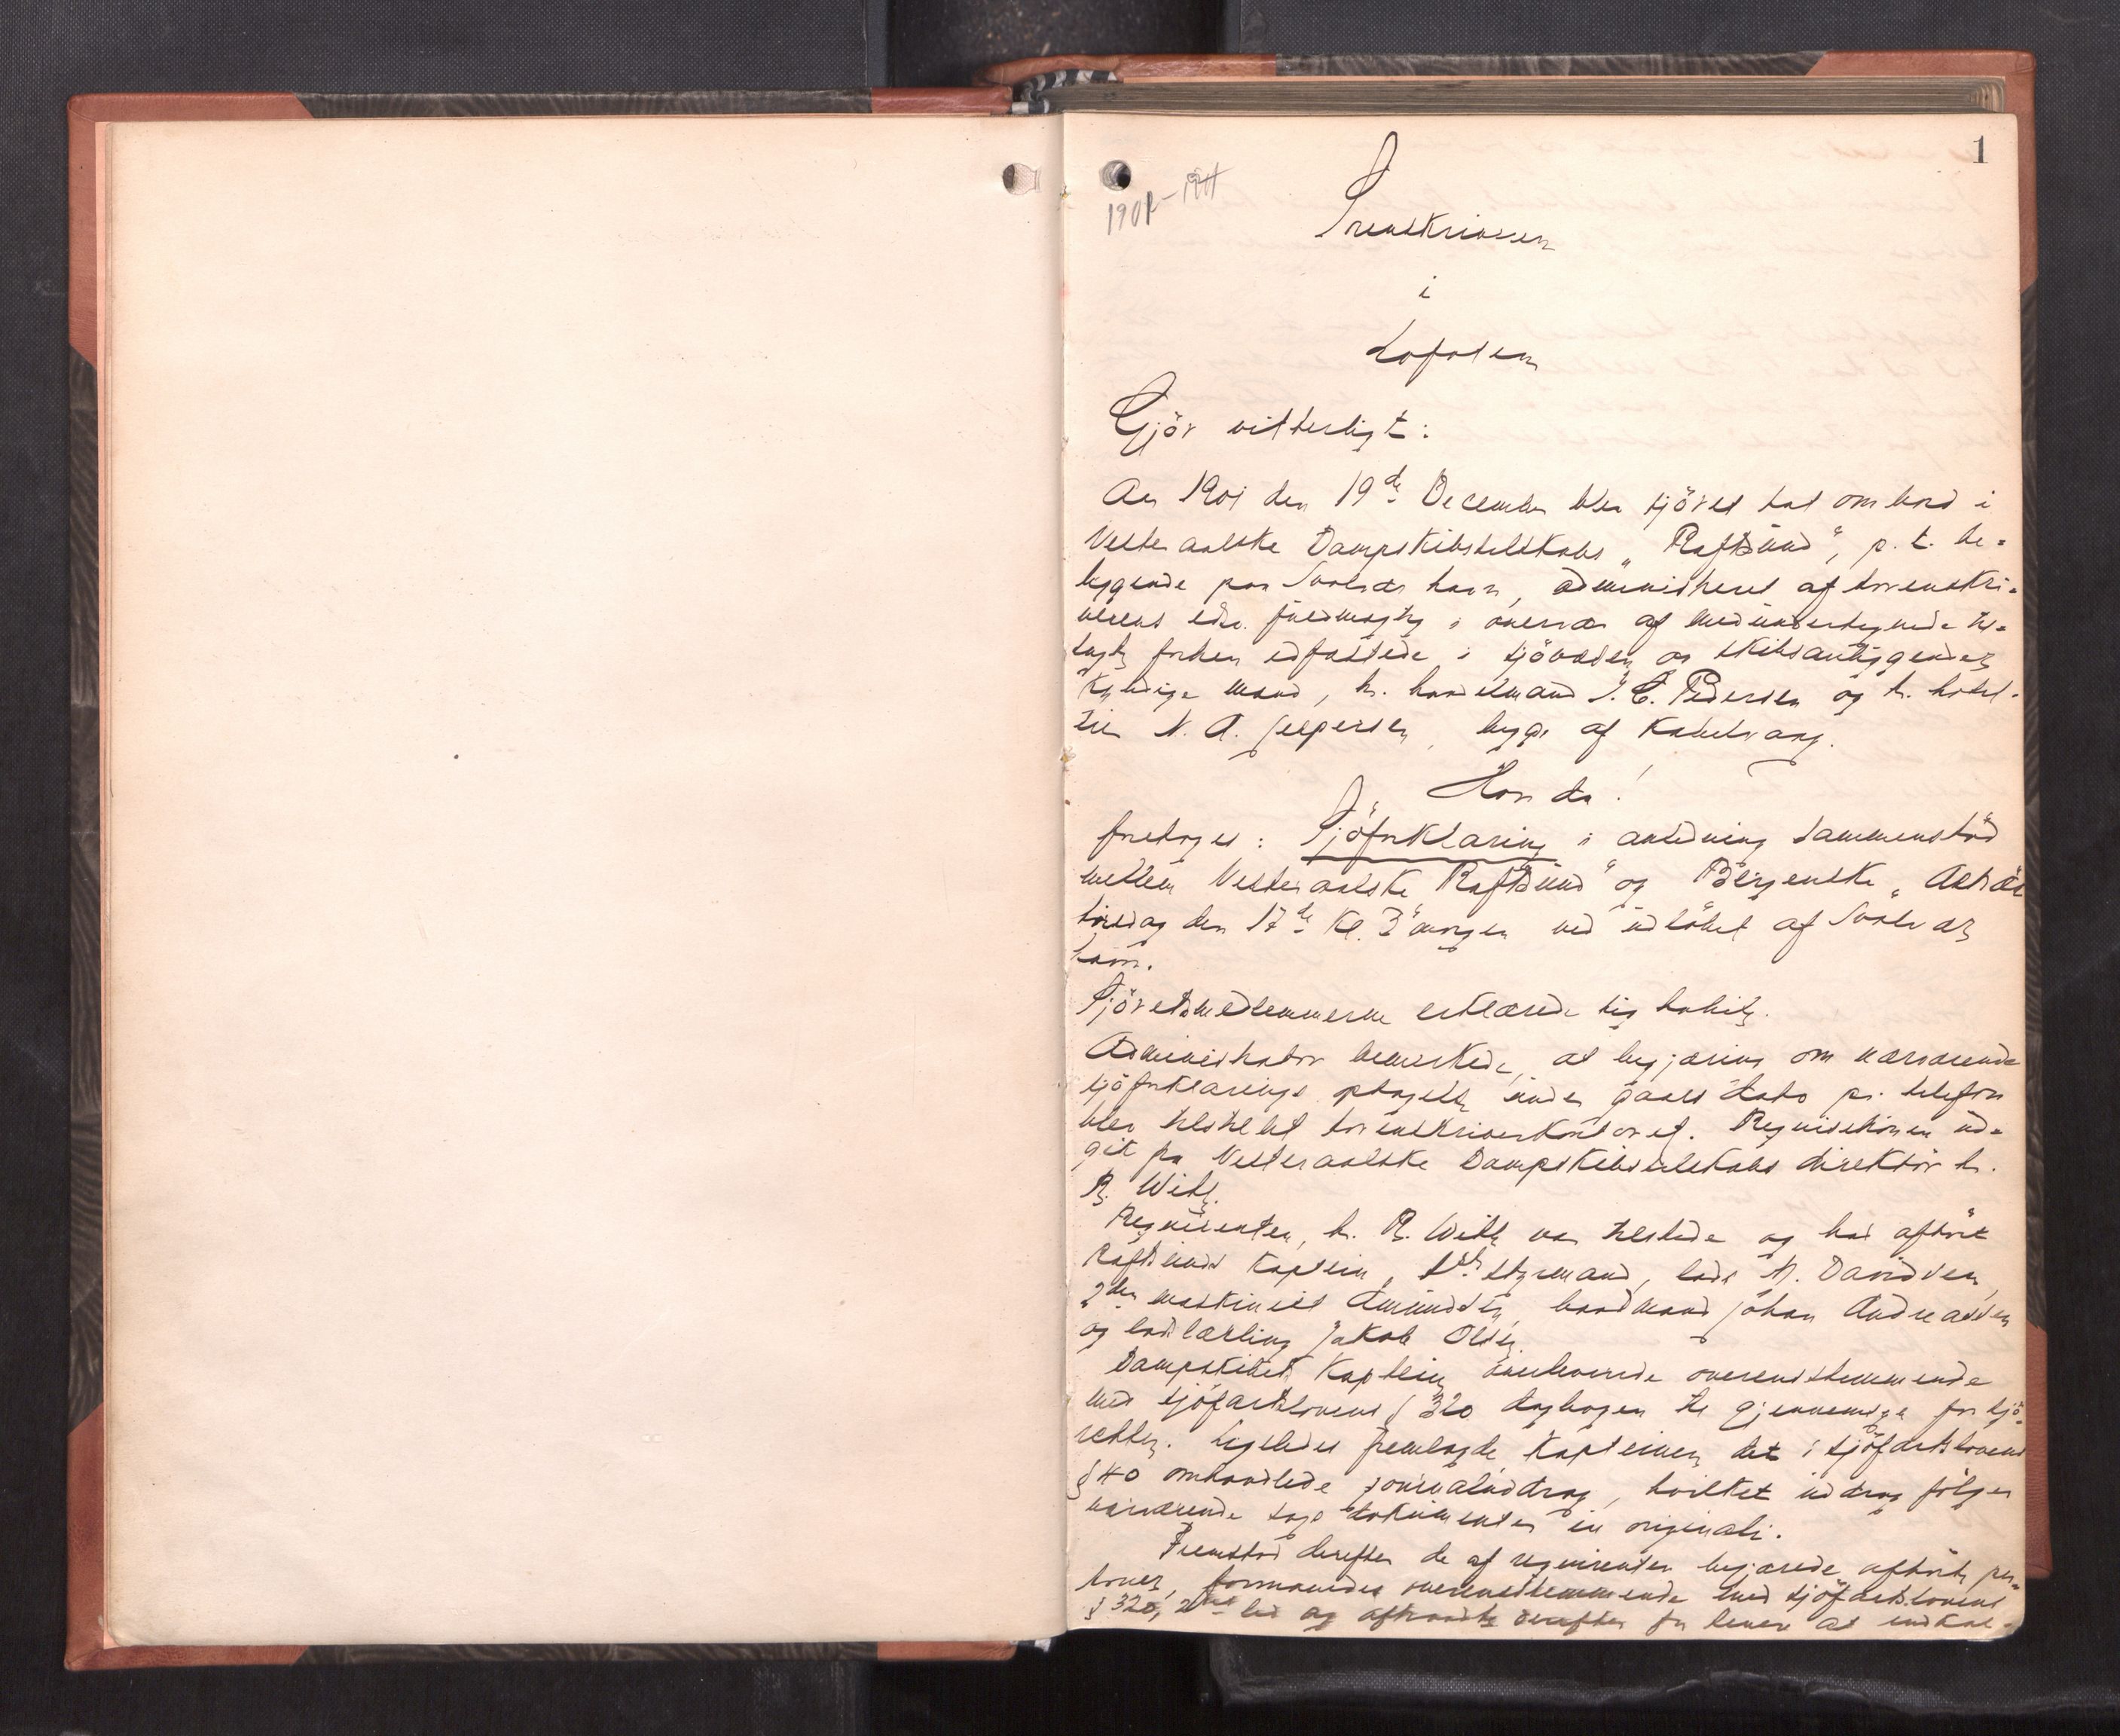 1
1901-1911
Sorenskriveren
i
Lofoten
Gjör vitterligt:
Aar 1901 den 19de December blev sjöret sat ombord i
Vesteraalske Dampskibsselskabs "Raftsund", p. t. be-
liggende paa Svolvær havn, administreret af sorenskri-
verens edsv. fuldmægtig i overvær af medundertegnede til-
kaldte forhen edfæstede i sjövæsen og skibsanliggender
kyndige mænd, hr. handelsmand J. E. Pedersen og hr. hotel-
eier N. A. Jespersen, begge af Kabelvaag.
Hvor da!
foretoges: Sjöforklaring i anledning sammenstöd
mellem Vesteraalske "Raftsund" og Bergenske "Astræa"
tirsdag den 17de kl. 3 morgen ved udlöbet af Svolvær
havn.
Sjöretsmedlemmerne erklærede sig habile.
Administrator bemerkede, at begjæring om nærværende
sjöforklarings optagelse under gaars dato pr. telefon
blev tilstillet sorenskriverkontoret. Requisitionen ud-
gik fra Vesteraalske Dampskibsselskabs direktör hr.
R. With.
Requirenten, hr. R. With var tilstede og bad afhört
Raftsunds kaptein, 1ste styrmand, lods N. Davidsen,
2den maskinist Amundsen, baadsmand Johan Andreassen
og lodslærling Jakob Olsen.
Dampskibets kaptein overleverede overensstemmende
med sjöfartslovens § 320 dagbogen til gjennemsyn for sjö-
retten. Ligeledes fremlagde kapteinen det i sjöfartslovens
§ 40 omhandlede journaluddrag, hvilket uddrag fölger
nærværende sags dokumenter in originali.
Fremstod derefter de af requirenten begjærede afhörte per-
soner, formanedes overensstemmende med sjöfartslovens
§ 320, 2det led og afhandledes derefter for senere at indkal-